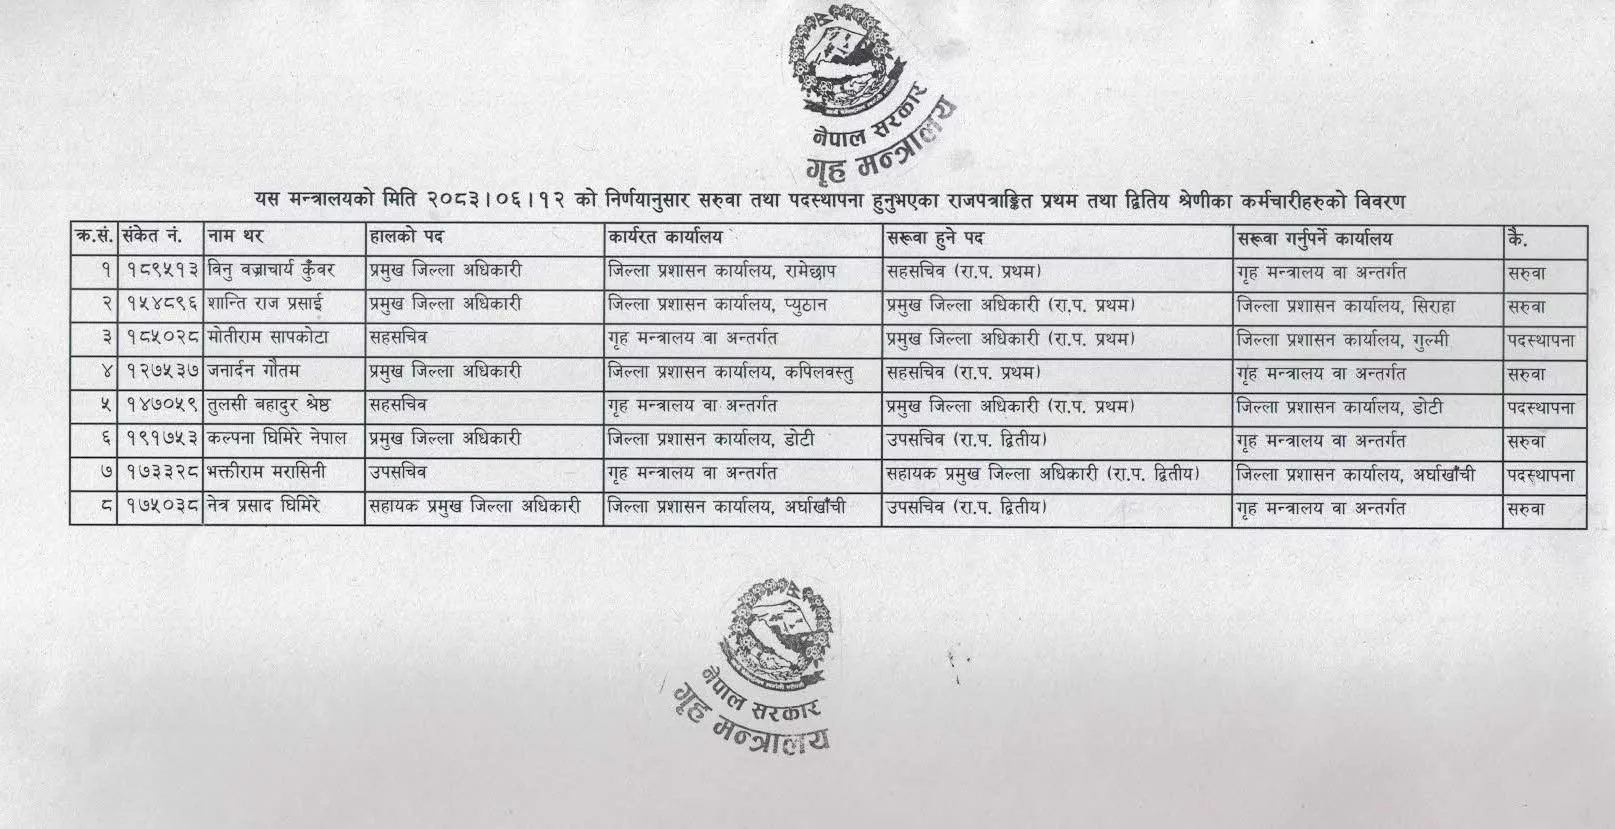 नेपाल सरकार
गृह मन्त्रालय
यस मन्त्रालयको मिति २०८३।०६।१२ को निर्णयानुसार सरुवा तथा पदस्थापना हुनुभएका राजपत्राङ्कित प्रथम तथा द्वितिय श्रेणीका कर्मचारीहरुको विवरण
क्र.सं. संकेत नं. नाम थर हालको पद कार्यरत कार्यालय सरूवा हुने पद सरूवा गर्नुपर्ने कार्यालय कै.
१ १८९५१३ विनु वज्राचार्य कुँवर प्रमुख जिल्ला अधिकारी जिल्ला प्रशासन कार्यालय, रामेछाप सहसचिव (रा.प. प्रथम) गृह मन्त्रालय वा अन्तर्गत सरुवा
२ १५४८९६ शान्ति राज प्रसाई प्रमुख जिल्ला अधिकारी जिल्ला प्रशासन कार्यालय, प्युठान प्रमुख जिल्ला अधिकारी (रा.प. प्रथम) जिल्ला प्रशासन कार्यालय, सिराहा सरुवा
३ १८५०२८ मोतीराम सापकोटा सहसचिव गृह मन्त्रालय वा अन्तर्गत प्रमुख जिल्ला अधिकारी (रा.प. प्रथम) जिल्ला प्रशासन कार्यालय, गुल्मी पदस्थापना
४ १२७५३७ जनार्दन गौतम प्रमुख जिल्ला अधिकारी जिल्ला प्रशासन कार्यालय, कपिलवस्तु सहसचिव (रा.प. प्रथम) गृह मन्त्रालय वा अन्तर्गत सरुवा
५ १४७०५९ तुलसी बहादुर श्रेष्ठ सहसचिव गृह मन्त्रालय वा अन्तर्गत प्रमुख जिल्ला अधिकारी (रा.प. प्रथम) जिल्ला प्रशासन कार्यालय, डोटी पदस्थापना
६ १९१७५३ कल्पना घिमिरे नेपाल प्रमुख जिल्ला अधिकारी जिल्ला प्रशासन कार्यालय, डोटी उपसचिव (रा.प. द्वितीय) गृह मन्त्रालय वा अन्तर्गत सरुवा
७ १७३३२८ भक्तीराम मरासिनी उपसचिव गृह मन्त्रालय वा अन्तर्गत सहायक प्रमुख जिल्ला अधिकारी (रा.प. द्वितीय) जिल्ला प्रशासन कार्यालय, अर्घाखाँची पदस्थापना
८ १७५०३८ नेत्र प्रसाद घिमिरे सहायक प्रमुख जिल्ला अधिकारी जिल्ला प्रशासन कार्यालय, अर्घाखाँची उपसचिव (रा.प. द्वितीय) गृह मन्त्रालय वा अन्तर्गत सरुवा
नेपाल सरकार
गृह मन्त्रालय